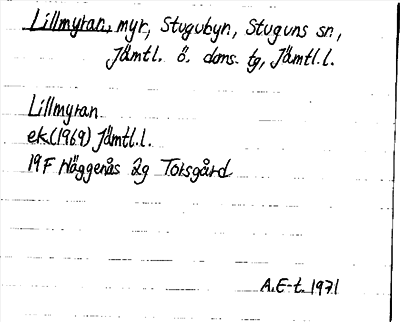 Lillmyran, myr, Stugubyn, Stuguns sn,
Jämtl. ö. doms. tg, Jämtl.l.
Lillmyran
ek.(1969) Jämtl.l.
19F Häggenås 2g Torsgård
A.E-t. 1971